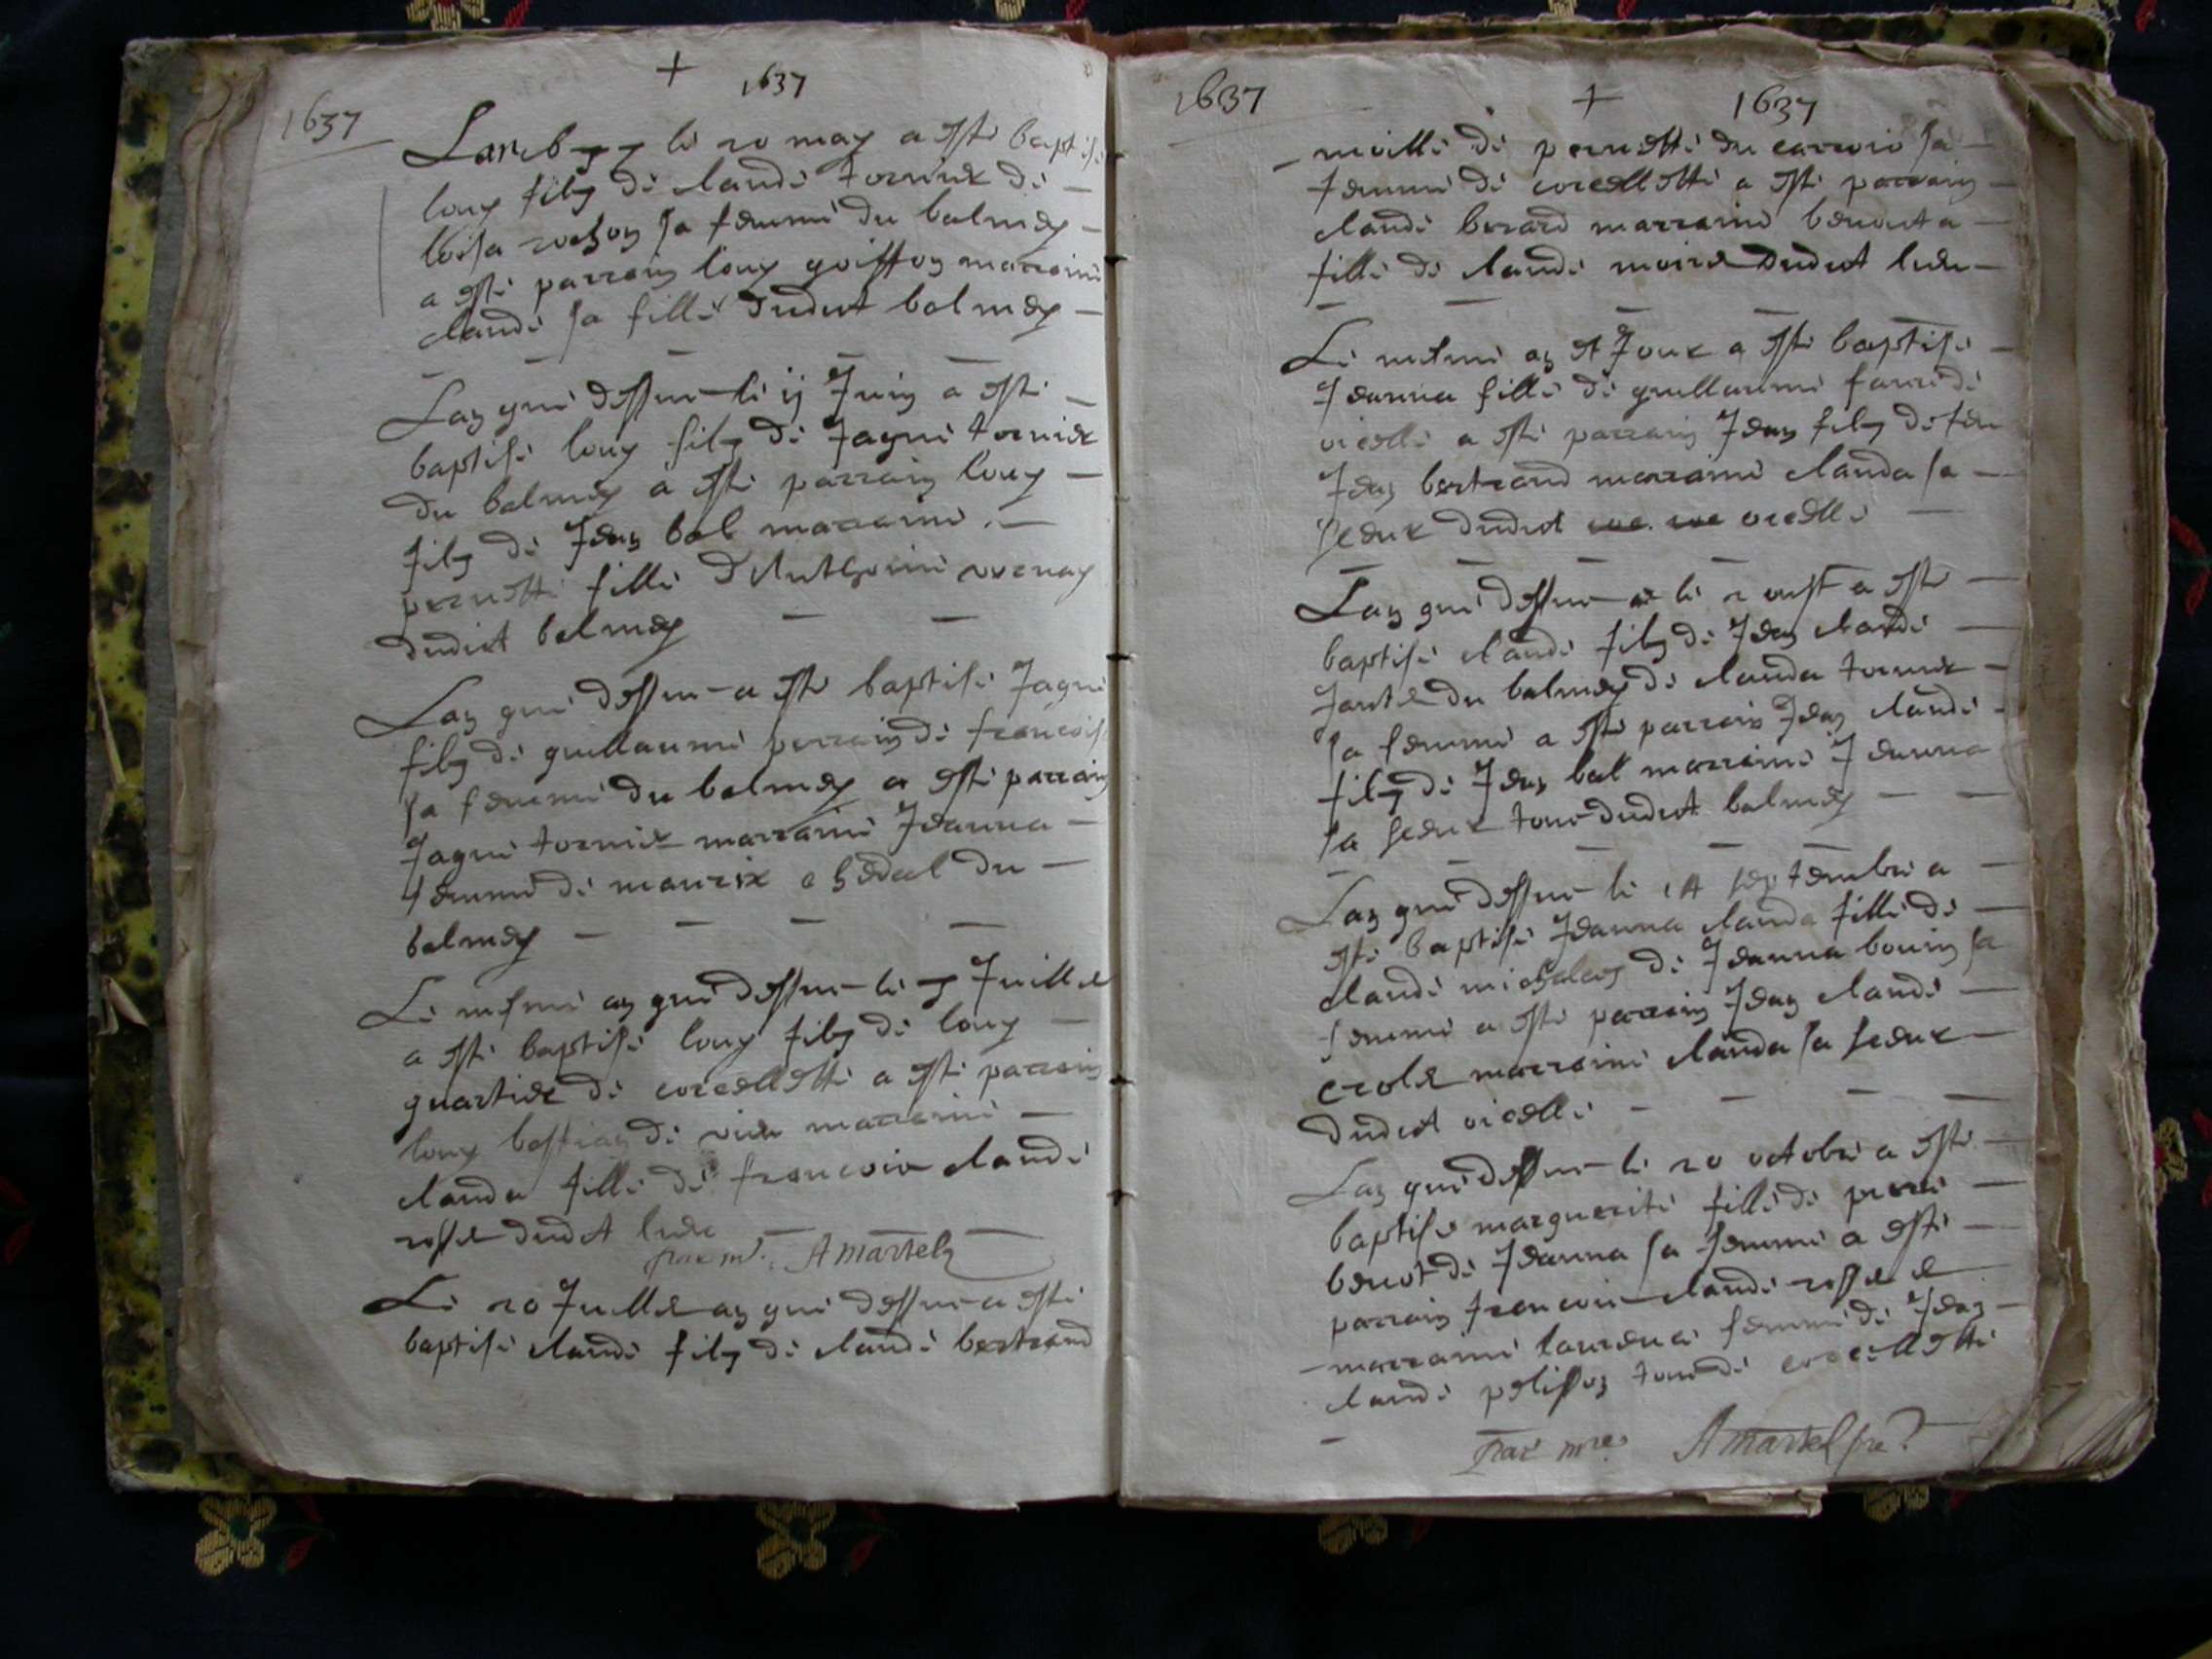 1637
+
1637
Lan 1637 le 20 may a este baptise
louy filz de claude tornier de
loisa rochon sa femme du balmey
a este parrain louy goiffon marraine
claude sa fille dudict balmey
Lan que dessus le ij Juin a este
baptise louy filz de Jaque tornier
du balmey a este parrain louy
filz de Jean bal marraine
pernette fille d'Anthoine vuernay
dudict balmey
Lan que dessus a este baptise Jaque
filz de guillaume perrain de francoise
sa femme du balmey a este parrain
Jaque tornier marraine Jeanna
femme de maurix du
balmey
Le mesme an que dessus le 7 Juillet
a este baptise louy filz de louy
quartier de corcellette a este parrain
louy bastian de vieu marraine
clauda fille de francois claude
rosset dudict lieu
par moy Amartel
Le 20 Juillet an que dessus a este
baptise claude filz de claude bertrand
1637
+
1637
de pernette du sa
femme de corcellette a este parrain
claude berard marraine benoicta
fille de claude moine dudict lieu
Le mesme an et Jour a este baptise
Jeanna fille de guillaume favre de
vicelle a este parrain Jean filz de feu
Jean bertrand marraine clauda sa
seur dudict vicelle
Lan que dessus le 2 oust a este
baptise claude filz de Jean claude
Jantet du balmey de clauda tornier
sa femme a este parrain Jean claude
filz de Jean bal marraine Jeanna
sa seur tous dudict balmey
Lan que dessus le 14 septembre a
este baptise Jeanna clauda fille de
claude michalon de Jeanna bouin sa
femme a este parrain Jean claude
crolet marraine clauda sa seur
dudict vicelle
Lan que dessus le 20 octobre a este
baptise marguerite fille de pierre
benoit de Jeanna sa femme a este
parrain francois claude rosset et
marraine laurence femme de Jean
claude pelisson tous de corcellette
par moy Amartel